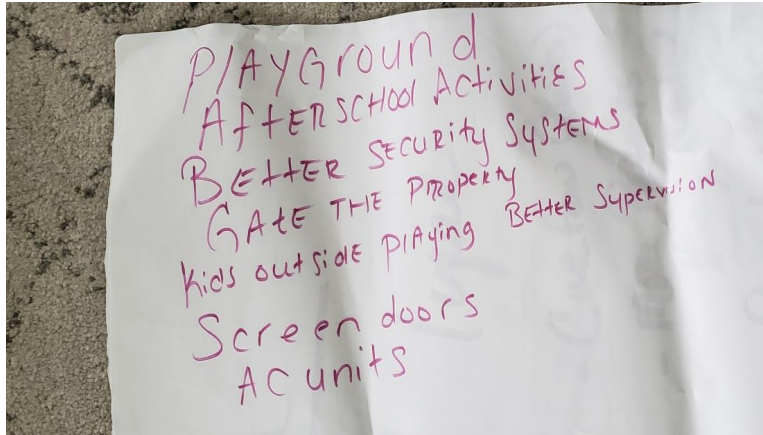 PLAYGround
AFTERSCHOOl ACTiviTiES
BETTER SECURity SYSTEMS
GATE THE PROPERTY
Kids outsidE PlAying BETTER SupERvisiON
Screen doors
AC units